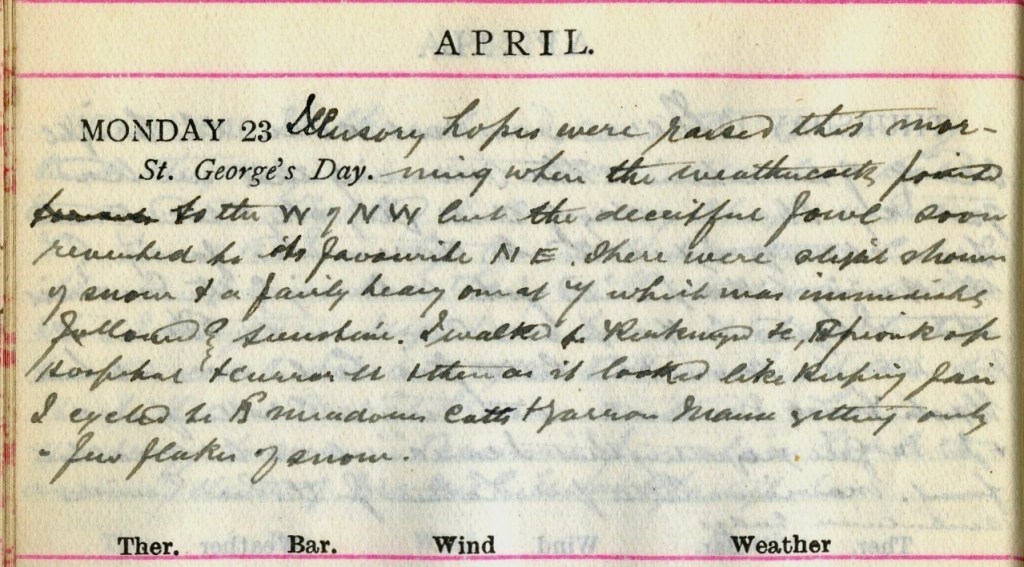 APRIL.
MONDAY 23 Illusory hopes were raised this mor-
St. George's Day. ning when the weathercock pointed
to the W of NW but the deceitful fowl soon
reverted to its favourite NE. There were slight showers
of snow & a fairly heavy one at which was immediately
followed by sunshine. I walked to
Hospital & & then as it looked like keeping fair
I cycled to meadows getting only
a few flakes of snow.
Ther. Bar. Wind Weather